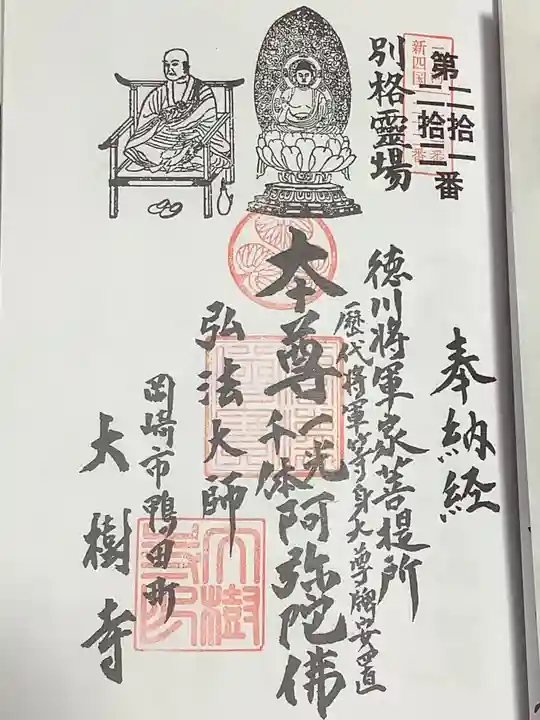 奉納経
第二拾一番
二拾二番
別格霊場
徳川将軍家菩提所
歴代将軍等身大尊牌安置
本尊一光千体阿弥陀佛
弘法大師
岡崎市鴨田町
大樹寺
新四国
番
大樹寺印